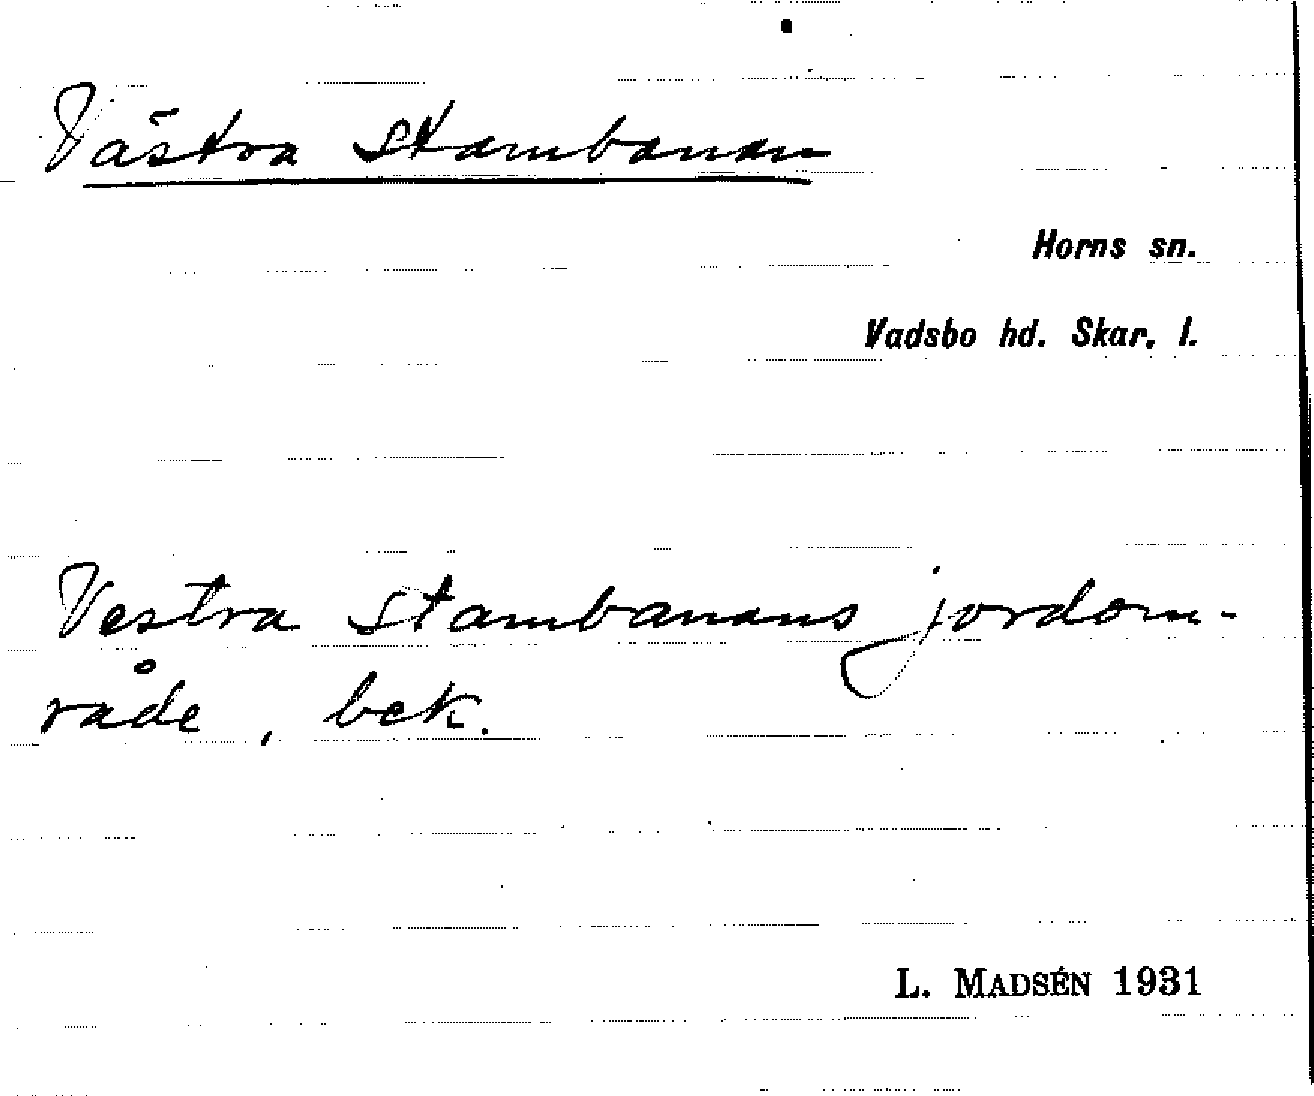 Västra Stambanan
Horns sn.
Vadsbo hd. Skar. l.
Vestra Stambanans jordom-
råde, bek.
L. MADSÉN 1931